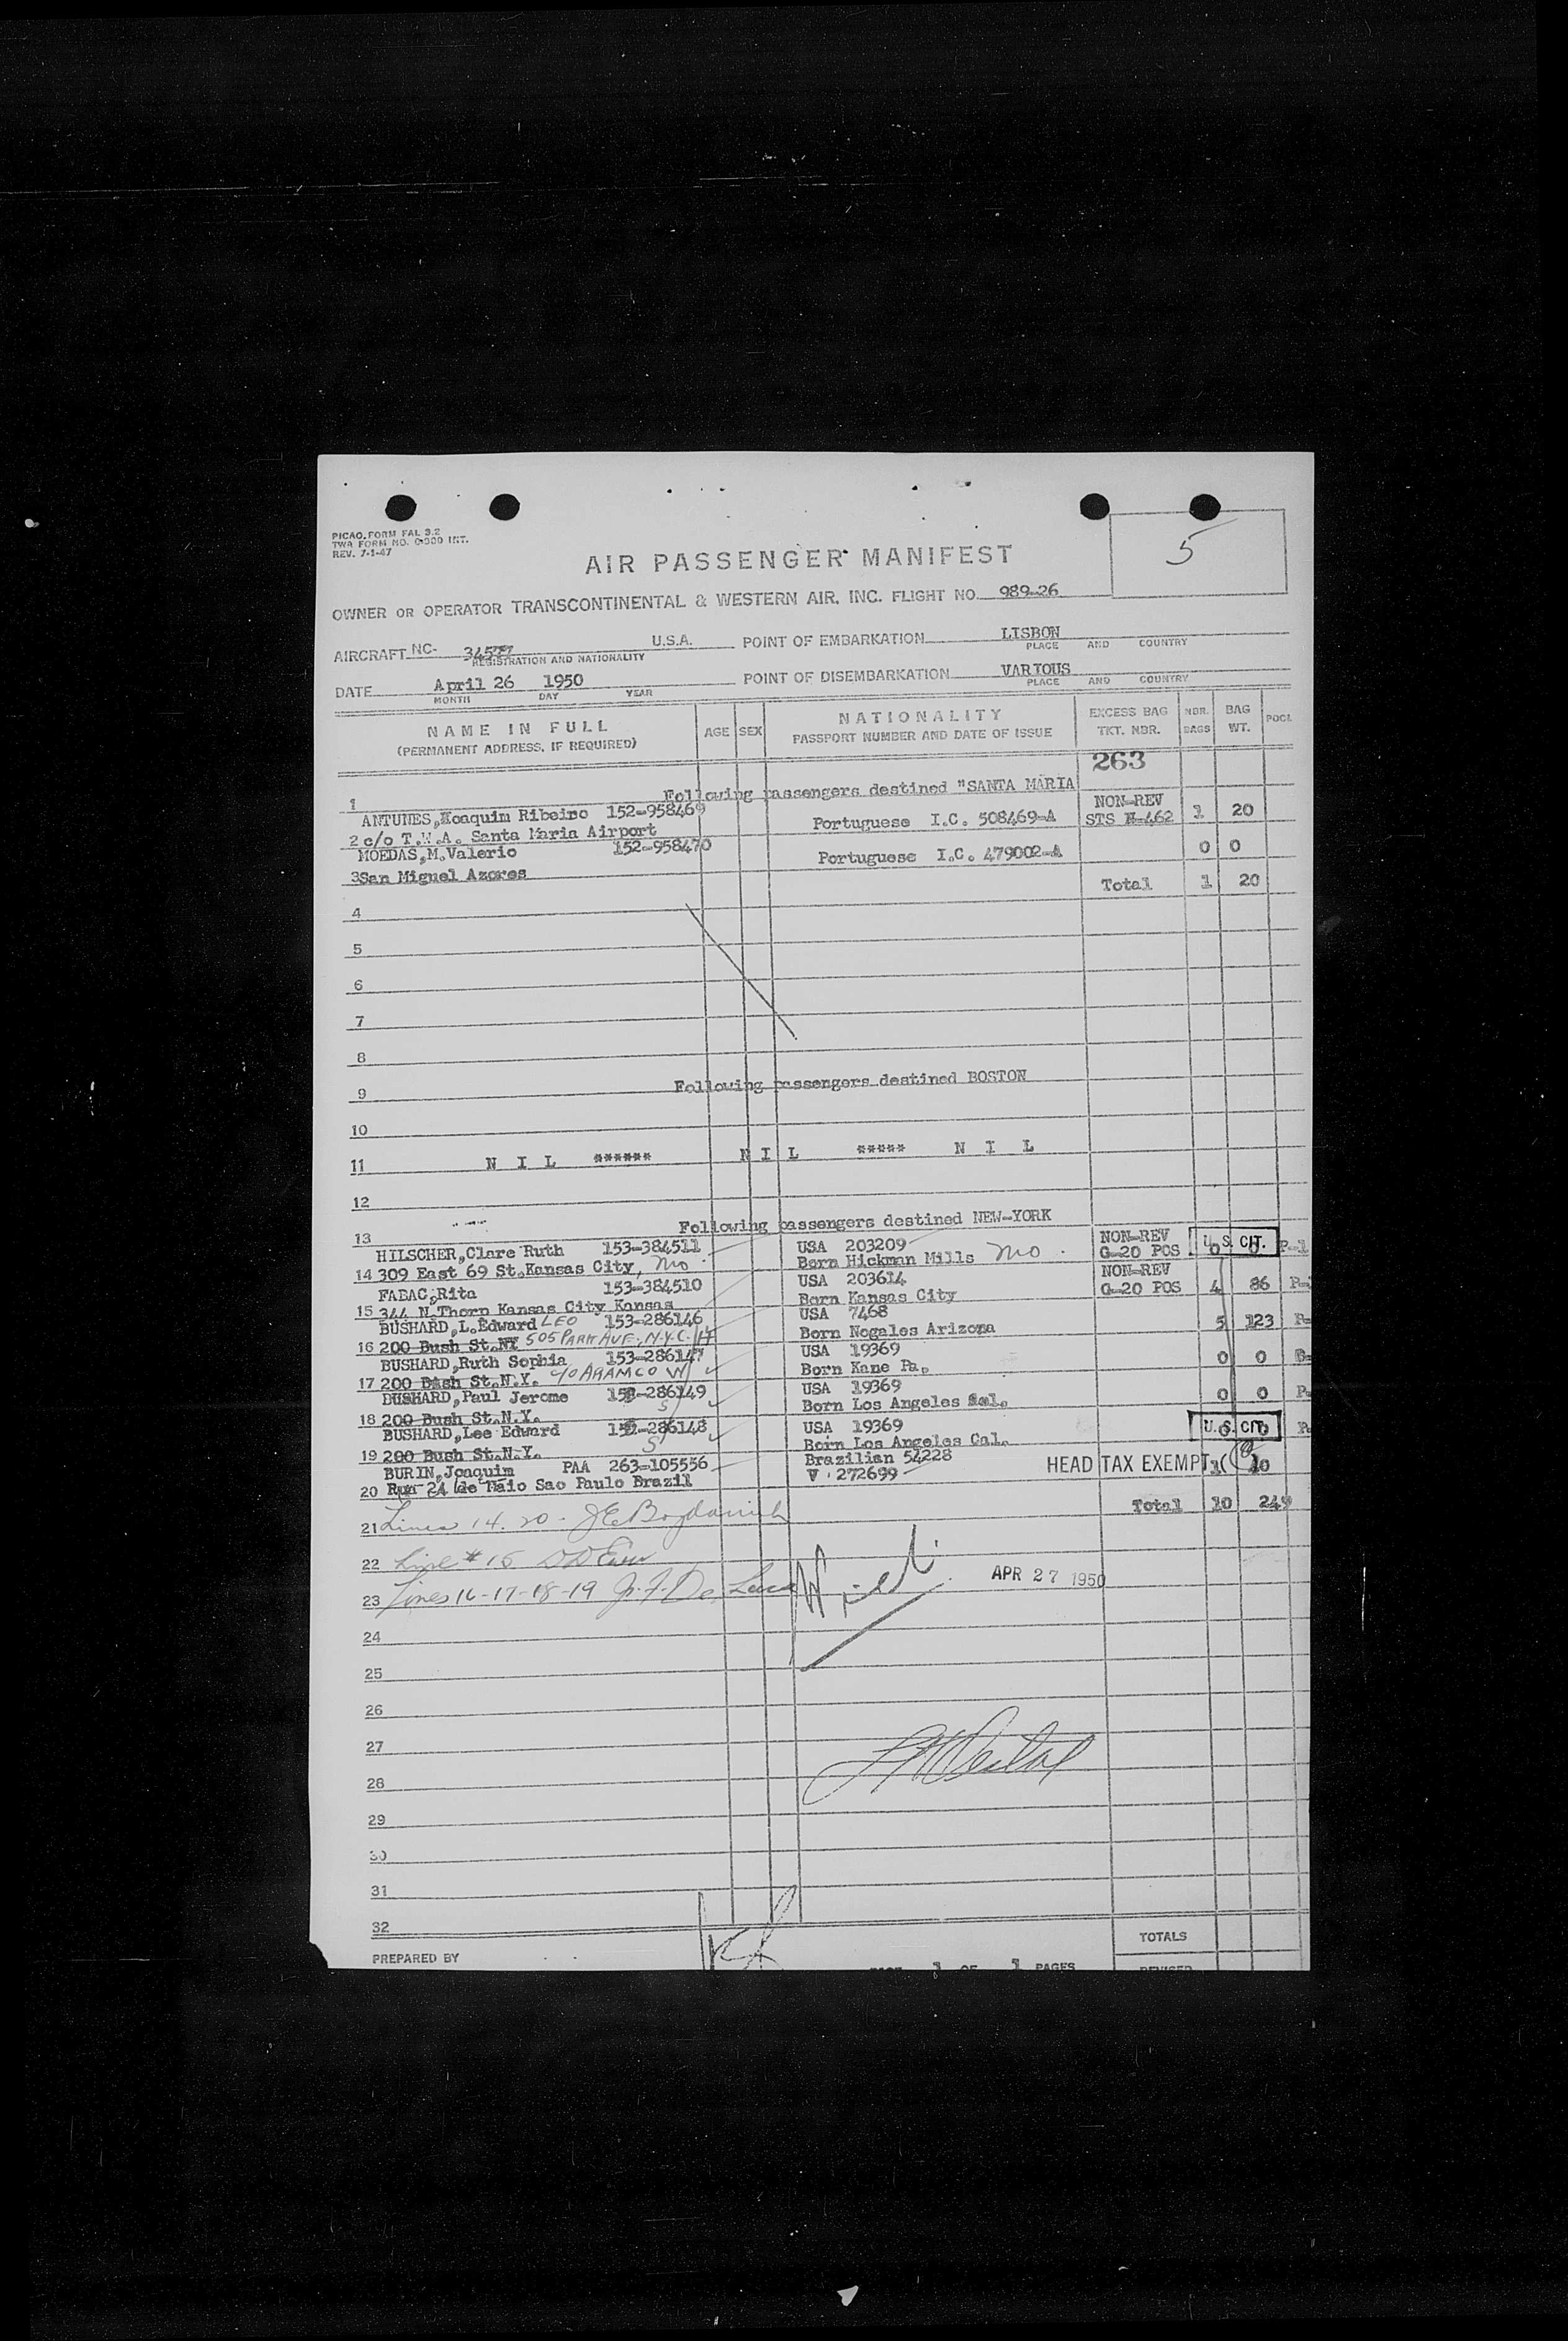 PICAO FORM FAL 3.2
TWA FORM NO. INT.
REV. 7-1-47
5
AIR PASSENGER MANIFEST
OWNER OR OPERATOR TRANSCONTINENTAL & WESTERN AIR, INC. FLIGHT NO. 989-26
AIRCRAFT NC- U.S.A. POINT OF EMBARKATION LISBON
REGISTRATION AND NATIONALITY PLACE AND COUNTRY
DATE April 26 1950 POINT OF DISEMBARKATION VARIOUS
MONTH DAY YEAR PLACE AND COUNTRY
NAME IN FULL AGE SEX NATIONALITY EXCESS BAG NBR. BAG
(PERMANENT ADDRESS, IF REQUIRED) PASSPORT NUMBER AND DATE OF ISSUE TKT. NBR. BAGS WT.
263
1 Following passengers destined "SANTA MARIA
ANTUNES, Ribeiro 152-958469 Portuguese I.C. 508469-A NON-REV 1 20
2 c/o T.W.A. Santa Maria Airport STS N-462
MOEDAS,M.Valerio 152-958470 Portuguese I.C. 479002-A 0 0
3 San Miguel Azores
Total 1 20
4
5
6
7
8
9 Following passengers destined BOSTON
10
11 N I L ****** N I L ***** N I L
12
13 Following passengers destined NEW-YORK
HILSCHER,Clare Ruth 153-384511 USA 203209 NON-REV 0 0 U.S. CIT. P-1
14 309 East 69 St.Kansas City, Mo. Born Hickman Mills Mo. G-20 POS
FABAC,Rita 153-384510 USA 203614 NON-REV
15 344 N.Thorp Kansas City Kansas Born Kansas City G-20 POS 4 86 P-
BUSHARD,L.Edward LEO 153-286146 USA 7468 5 123 P-
16 200 Bush St.NY 505 PARK AVE. N.Y.C. Born Nogales Arizona
BUSHARD,Ruth Sophia 153-286147 USA 19369 0 0
17 200 Bush St.N.Y. c/o ARAMCO Born Kane Pa.
BUSHARD,Paul Jerome 153-286149 USA 19369 0 0 P-
18 200 Bush St.N.Y. Born Los Angeles Cal.
BUSHARD,Lee Edward 153-286148 USA 19369 U.S. CIT. P-
19 200 Bush St.N.Y. Born Los Angeles Cal.
BURIN,Joaquim PAA 263-105556 Brazilian 54228 HEAD TAX EXEMPT 1 40
20 Rua 24 de Maio Sao Paulo Brazil V. 272699
Total 10 249
21 Lines 14. 20 -
22 Line # 15
23 Lines 16-17-18-19
APR 27 1950
24
25
26
27
28
29
30
31
32
TOTALS
PREPARED BY
PAGE 1 OF 1 PAGES
REVISED